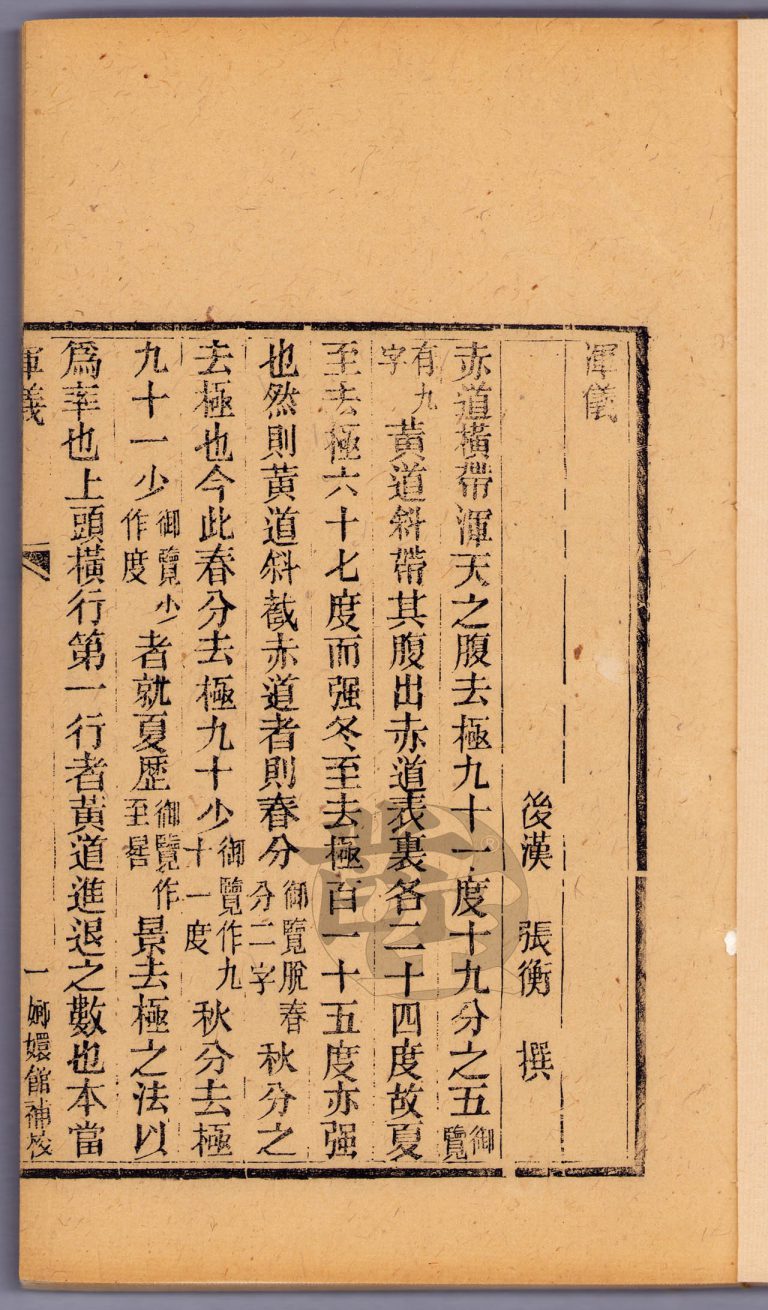 渾儀
後漢 張衡 撰
赤道橫帶渾天之腹去極九十一度十九分之五御覽
有九字黃道斜帶其腹出赤道表裏各二十四度故夏
至去極六十七度而强冬至去極百一十五度亦强
也然則黃道斜截赤道者則春分御覽脫春分二字秋分之
去極也今此春分去極九十少御覽作九十一度秋分去極
九十一少御覽少作度者就夏歷御覽作至晷景去極之法以
爲率也上頭橫行第一行者黃道進退之數也本當
渾儀 一 嫏嬛館補校